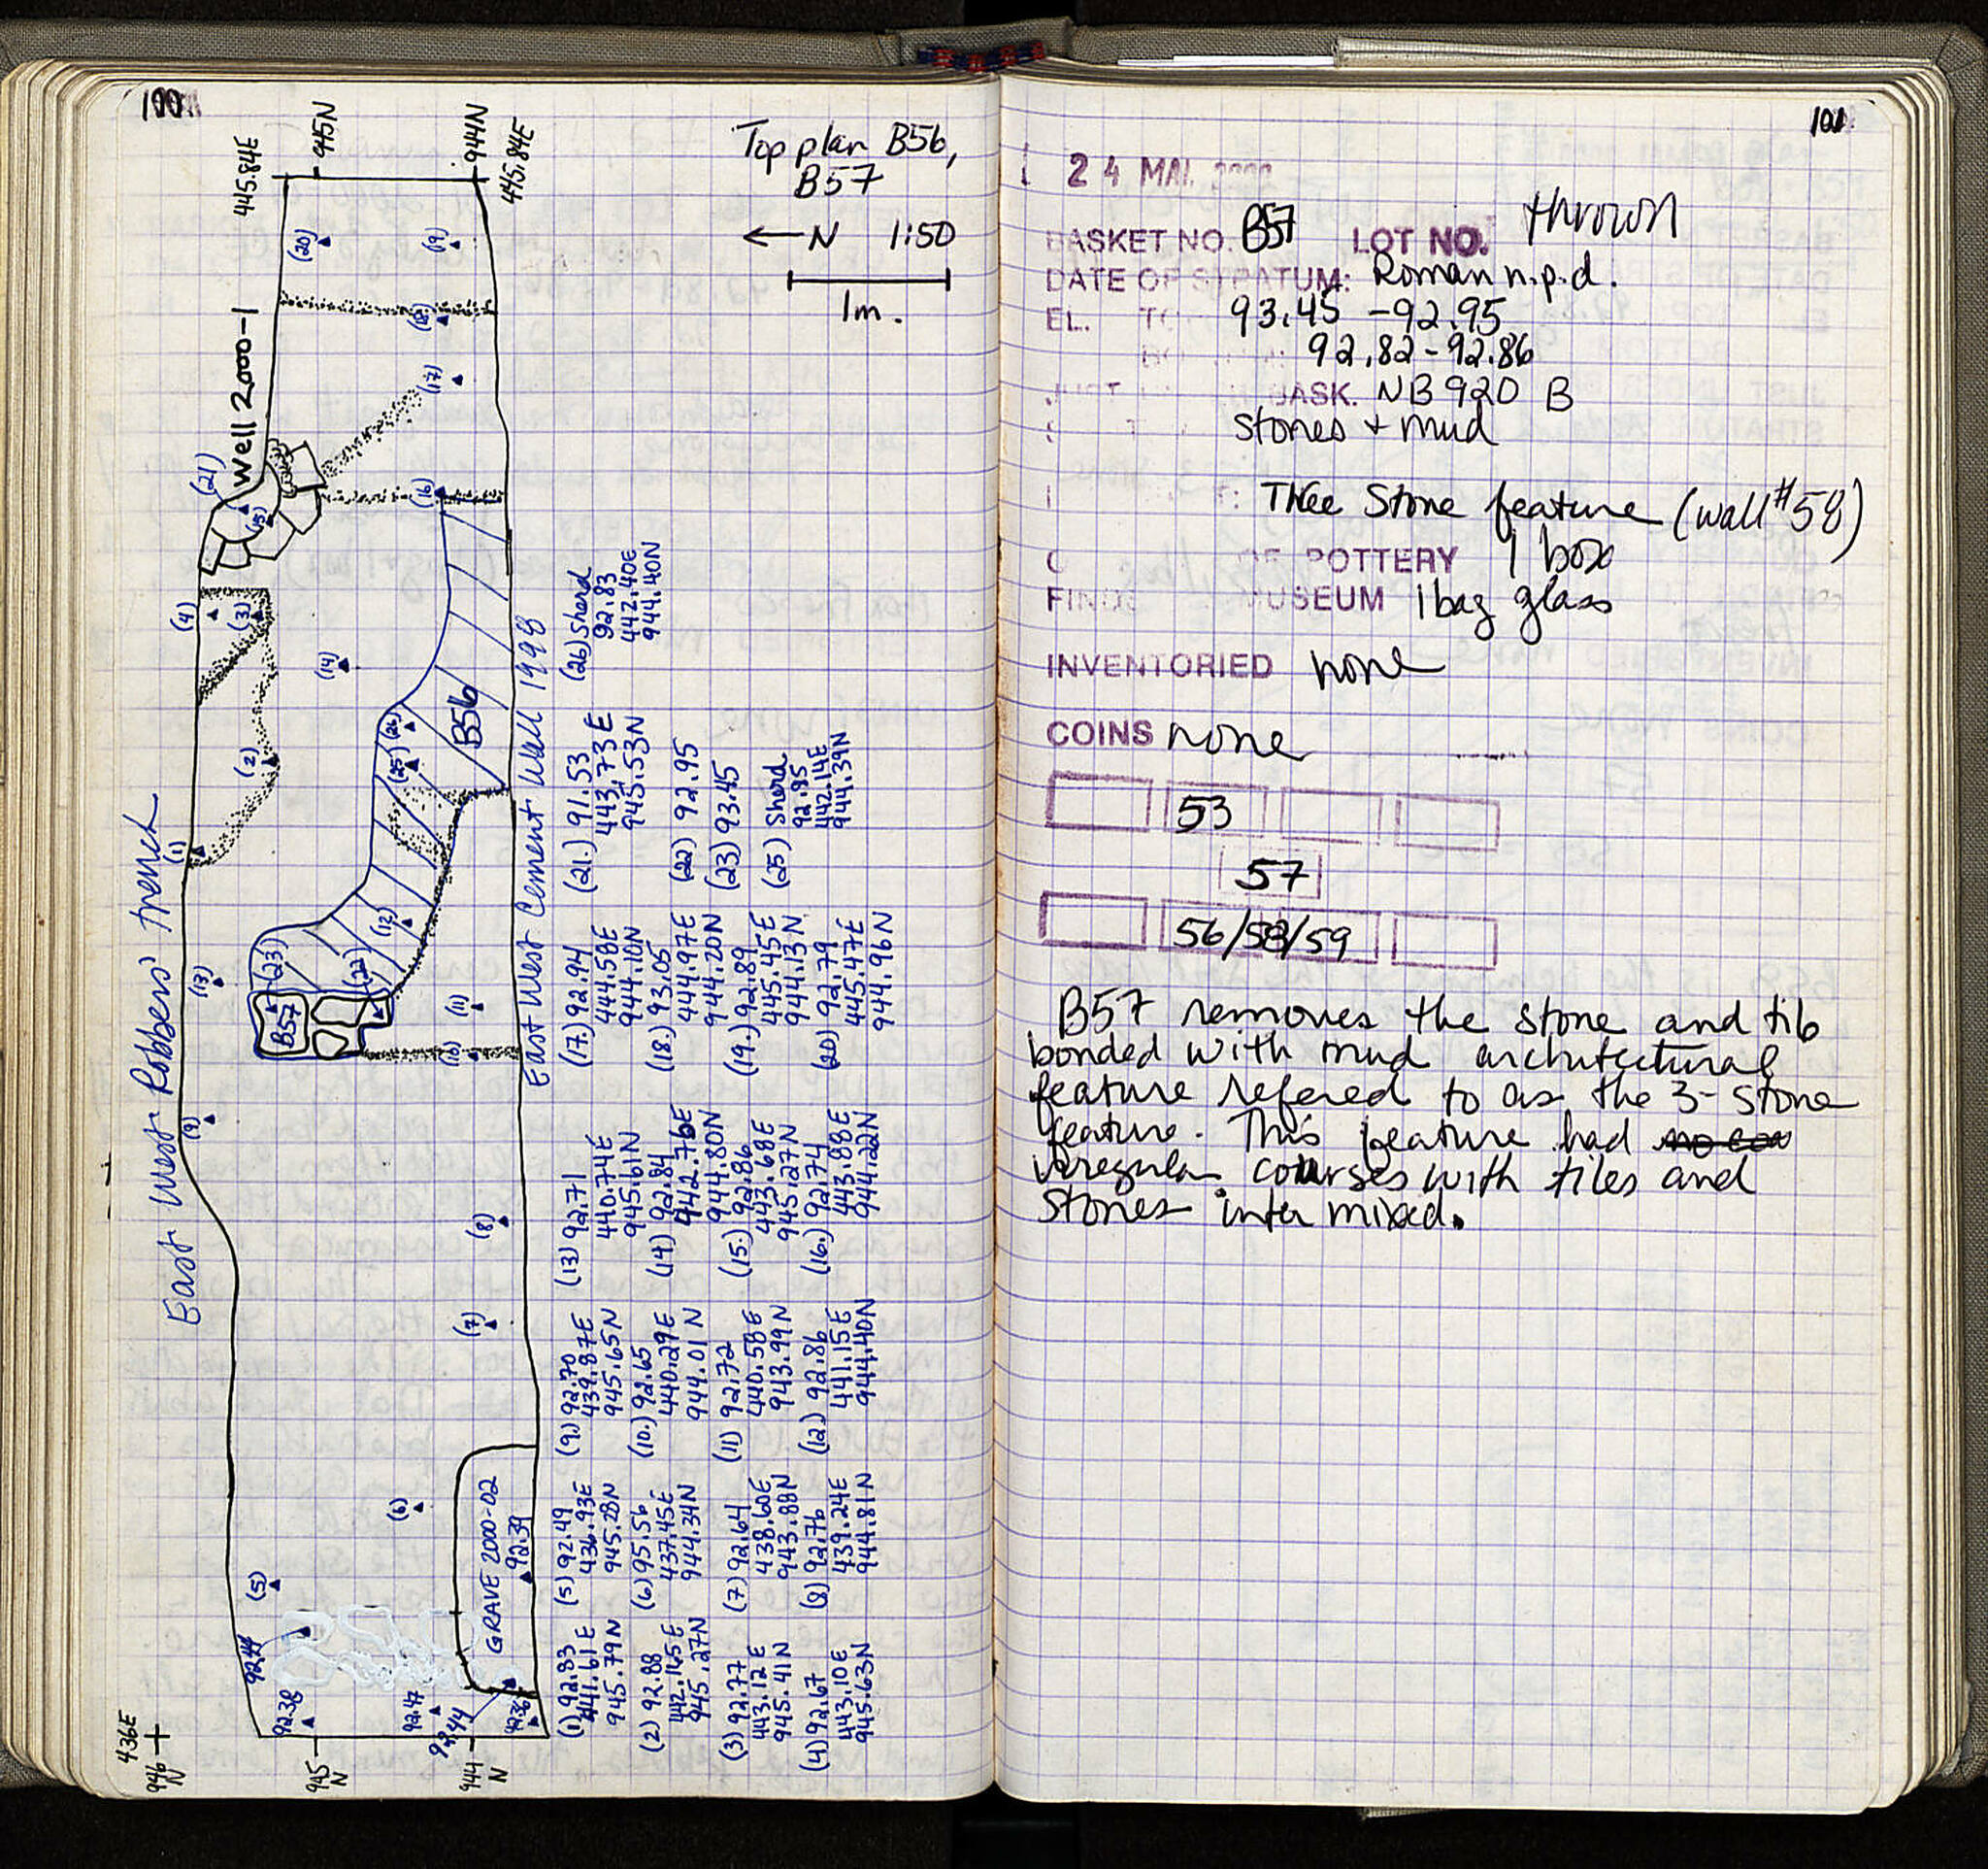 100
445.84E
945N
944N
445.84E
Top plan B56,
B57
← N 1:50
1m.
Well 2000-1
East West Robbers' trench
East West Cement Wall 1998
B56
B57
GRAVE 2000-02
92.39
92.44
92.38
92.47
92.44
92.36
436E
946 N
945 N
944 N
(1)
(2)
(3)
(4)
(5)
(6)
(7)
(8)
(9)
(10)
(11)
(12)
(13)
(14)
(15)
(16)
(17)
(18)
(19)
(20)
(21)
(22)
(23)
(25)
(26)
(1) 92.83
441.61 E
945.79N
(2) 92.88
442.165E
945.27N
(3) 92.77
443.12 E
945.41N
(4) 92.67
443.10E
945.63N
(5) 92.49
436.93E
945.28N
(6) 95.56
437.45E
944.34N
(7) 92.64
438.60E
943.88N
(8) 92.76
439.24E
944.81N
(9.) 92.70
439.87E
945.65N
(10.) 92.65
440.29E
944.01 N
(11) 92.72
440.58E
943.99N
(12) 92.86
441.15E
944.40N
(13) 92.71
440.74E
945.61N
(14) 92.84
442.76E
944.80N
(15.) 92.86
443.68E
945.27N
(16.) 92.74
443.88E
944.22N
(17.) 92.94
444.58E
944.10N
(18.) 93.05
444.97E
944.20N
(19.) 92.89
445.45E
944.13N
(20) 92.79
445.47E
944.96N
(21.) 91.53
443.73 E
945.53N
(22) 92.95
(23) 93.45
(25) Sherd
92.85
442.14E
944.39N
(26) Sherd
92.83
442.40E
944.40N
101
24 MAI
BASKET NO. B57 LOT NO. thrown
DATE OF STRATUM: Roman n.p.d.
EL. TO 93.45 - 92.95
92.82 - 92.86
BASK. NB 920 B
stones + mud
Thee Stone feature (wall #58)
OF POTTERY 1 box
FINDS MUSEUM 1 bag glass
INVENTORIED none
COINS none
53
57
56/58/59
B57 removes the stone and tib
bonded with mud archutectural
feature refered to as the 3-stone
feature. This feature had no cou
irregular courses with tiles and
stones inter mixed.